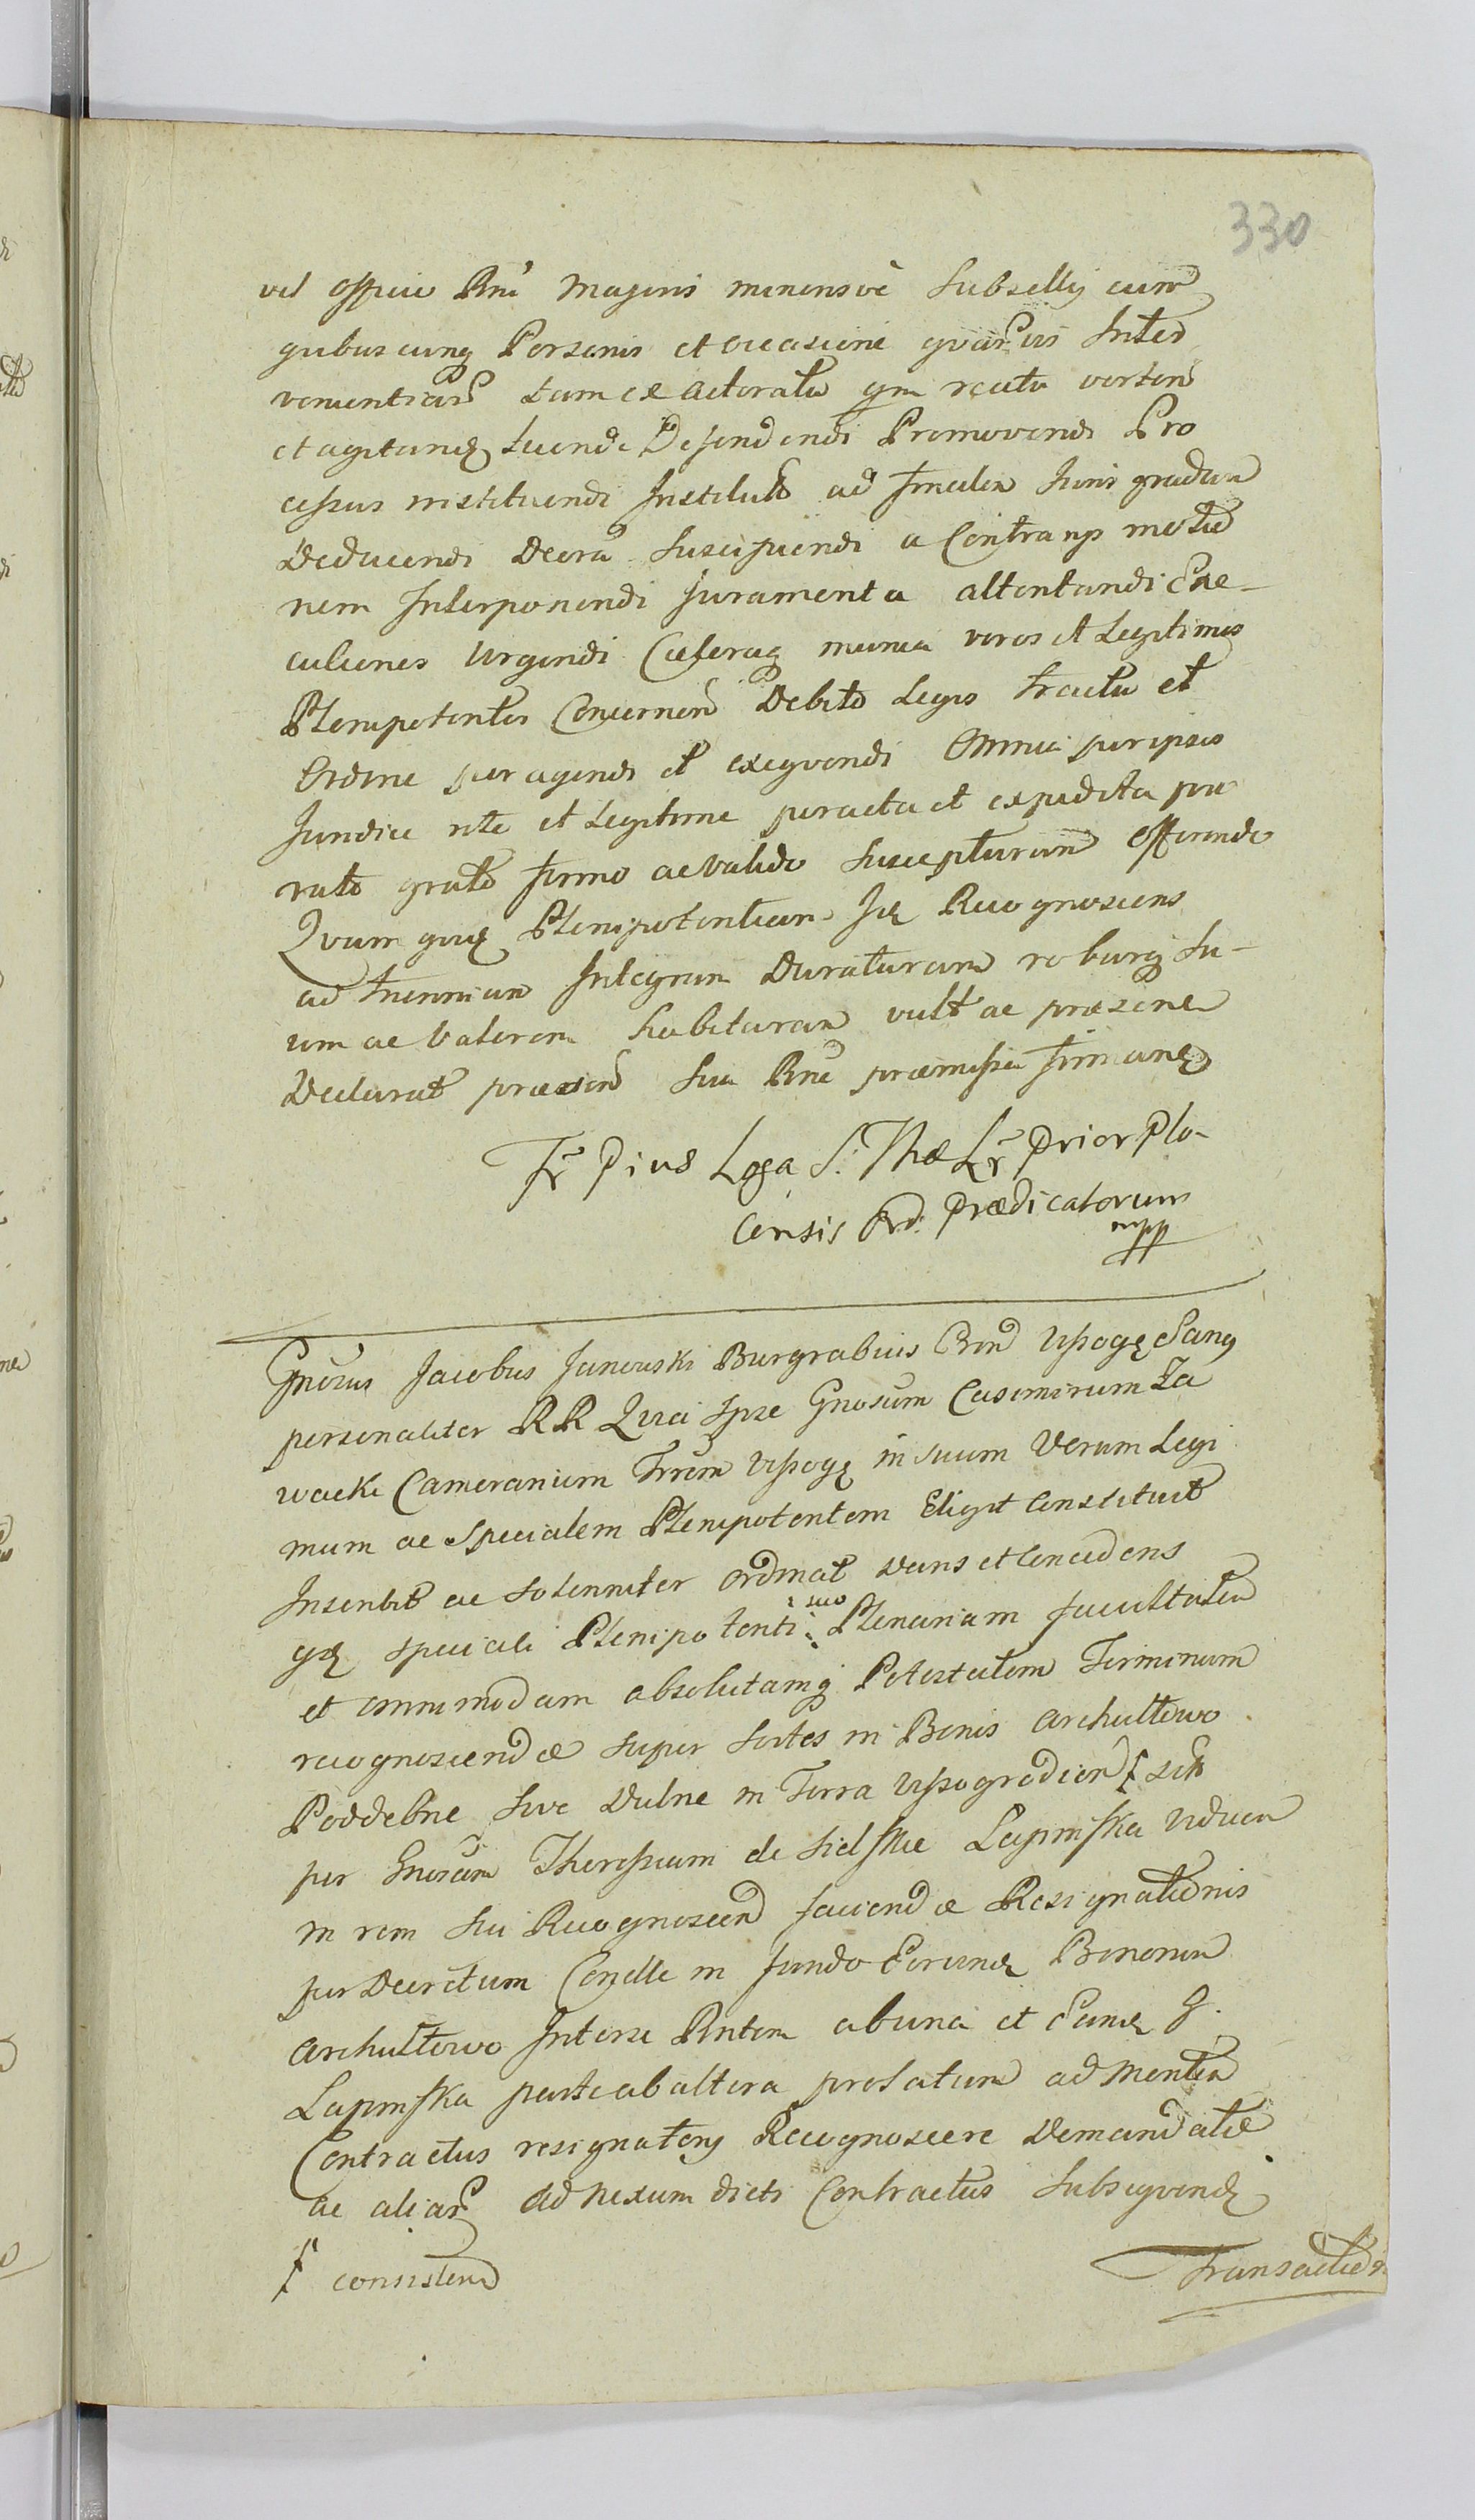 330
vel officio Rni Majoris minorisvè Subsellij cum
quibuscunq Personis et occasione qvarvis Inter
venientiar tam ex actoratu qm reatu vorten
et agitandq tuendi Defendendi Promovendi Pro
cessus instituendi Institutos ad finalem Juris gradum
Deducendi Decra Suscipiendi a Contranys motio
nem Interponendi Juramenta attentandi Exe-
cutiones Urgendi Caeteraq munia veros et Legitimos
Plenipotentes Concernen Debito Legis tractu et
Ordine peragendi et exeqvendi Omnia per ipsos
Juridice rite et Legitime peracta et expedita pro
rato grato firmo ac valido Suscepturum offerendo
Qvam quidq Plenipotentiam Idq Recognoscens
ad triennium Integrum Duraturam roburq Su-
um ac Valorem habituram vult ac praesene
Declarat praesen Sua Rne praemissa firmandq
Fr Pius Loga S. Thae Lr Prior Plo-
censis Ord. Praedicatorum
mpp
Gnosus Jacobus Janowski Burgrabius Cron Vyssogq Sanq
personaliter RR Quia Ipse Gnosum Casimirum Za
wacki Camerarium Trrum Vyssogq in suum Verum Legi
mum ac Specialem Plenipotentem Eligit Constituit
Inscribit ac Solenniter Ordinat Dans et Concedens
qdq speciali Plenipotenti suo Plenariam facultatem
et omnimodam absolutamq Potestatem Terminum
recognoscendae super Sortes in Bonis Archutowo
Poddebne sive Dulne in Terra Vyssogrodien sitis
per Gnosam Theressiam de Sielskie Lapinska Viduam
in rem Sui Recognoscen faciendae Resignationis
per Decretum Condle in fundo Eorundq Bonorum
Archutowo Interse Rntem ab una et Eandq G.
Lapinska parte ab altera prolatum ad Mentem
Contractus resignatorij Recognoscere Demandatae
ac aliar ad Nexum dicti Contractus Subseqvendq
consisten
Transactio